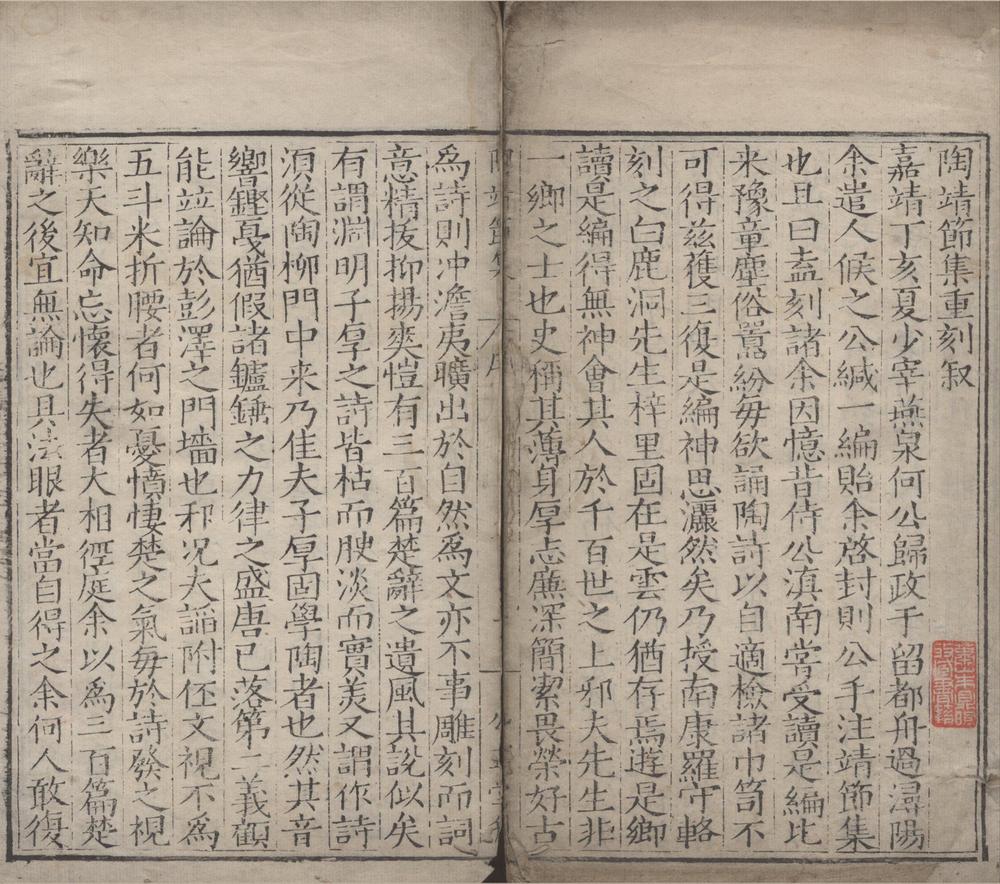 陶靖節集重刻叙
嘉靖丁亥夏少宰燕泉何公歸政于留都舟過潯陽
余遣人候之公緘一編貽余啓封則公手注靖節集
也且曰盍刻諸余因憶昔侍公滇南嘗受讀是編比
来豫章塵俗嚣紛毎欲誦陶詩以自適檢諸巾笥不
可得兹獲三復是編神思灑然矣乃授南康羅守輅
刻之白鹿洞先生梓里固在是雲仍猶存焉遊是鄉
讀是編得無神會其人於千百世之上邪夫先生非
一鄉之士也史稱其薄身厚志廉深簡潔畏榮好古
陶靖節集 序
為詩則冲澹夷曠出於自然為文亦不事雕刻而詞
意精拔抑揚爽愷有三百篇楚辭之遺風其說似矣
有謂淵明子厚之詩皆枯而腴淡而實羙又謂作詩
湏從陶柳門中来乃佳夫子厚固學陶者也然其音
響鏗戞猶假諸鑪錘之力律之盛唐已落第二義顧
能並論於彭澤之門墻也邪况夫謟附伾文視不為
五斗米折腰者何如憂憤悽楚之氣毎於詩發之視
樂天知命忘懷得失者大相徑庭余以為三百篇楚
辭之後宜無論也具法眼者當自得之余何人敢復